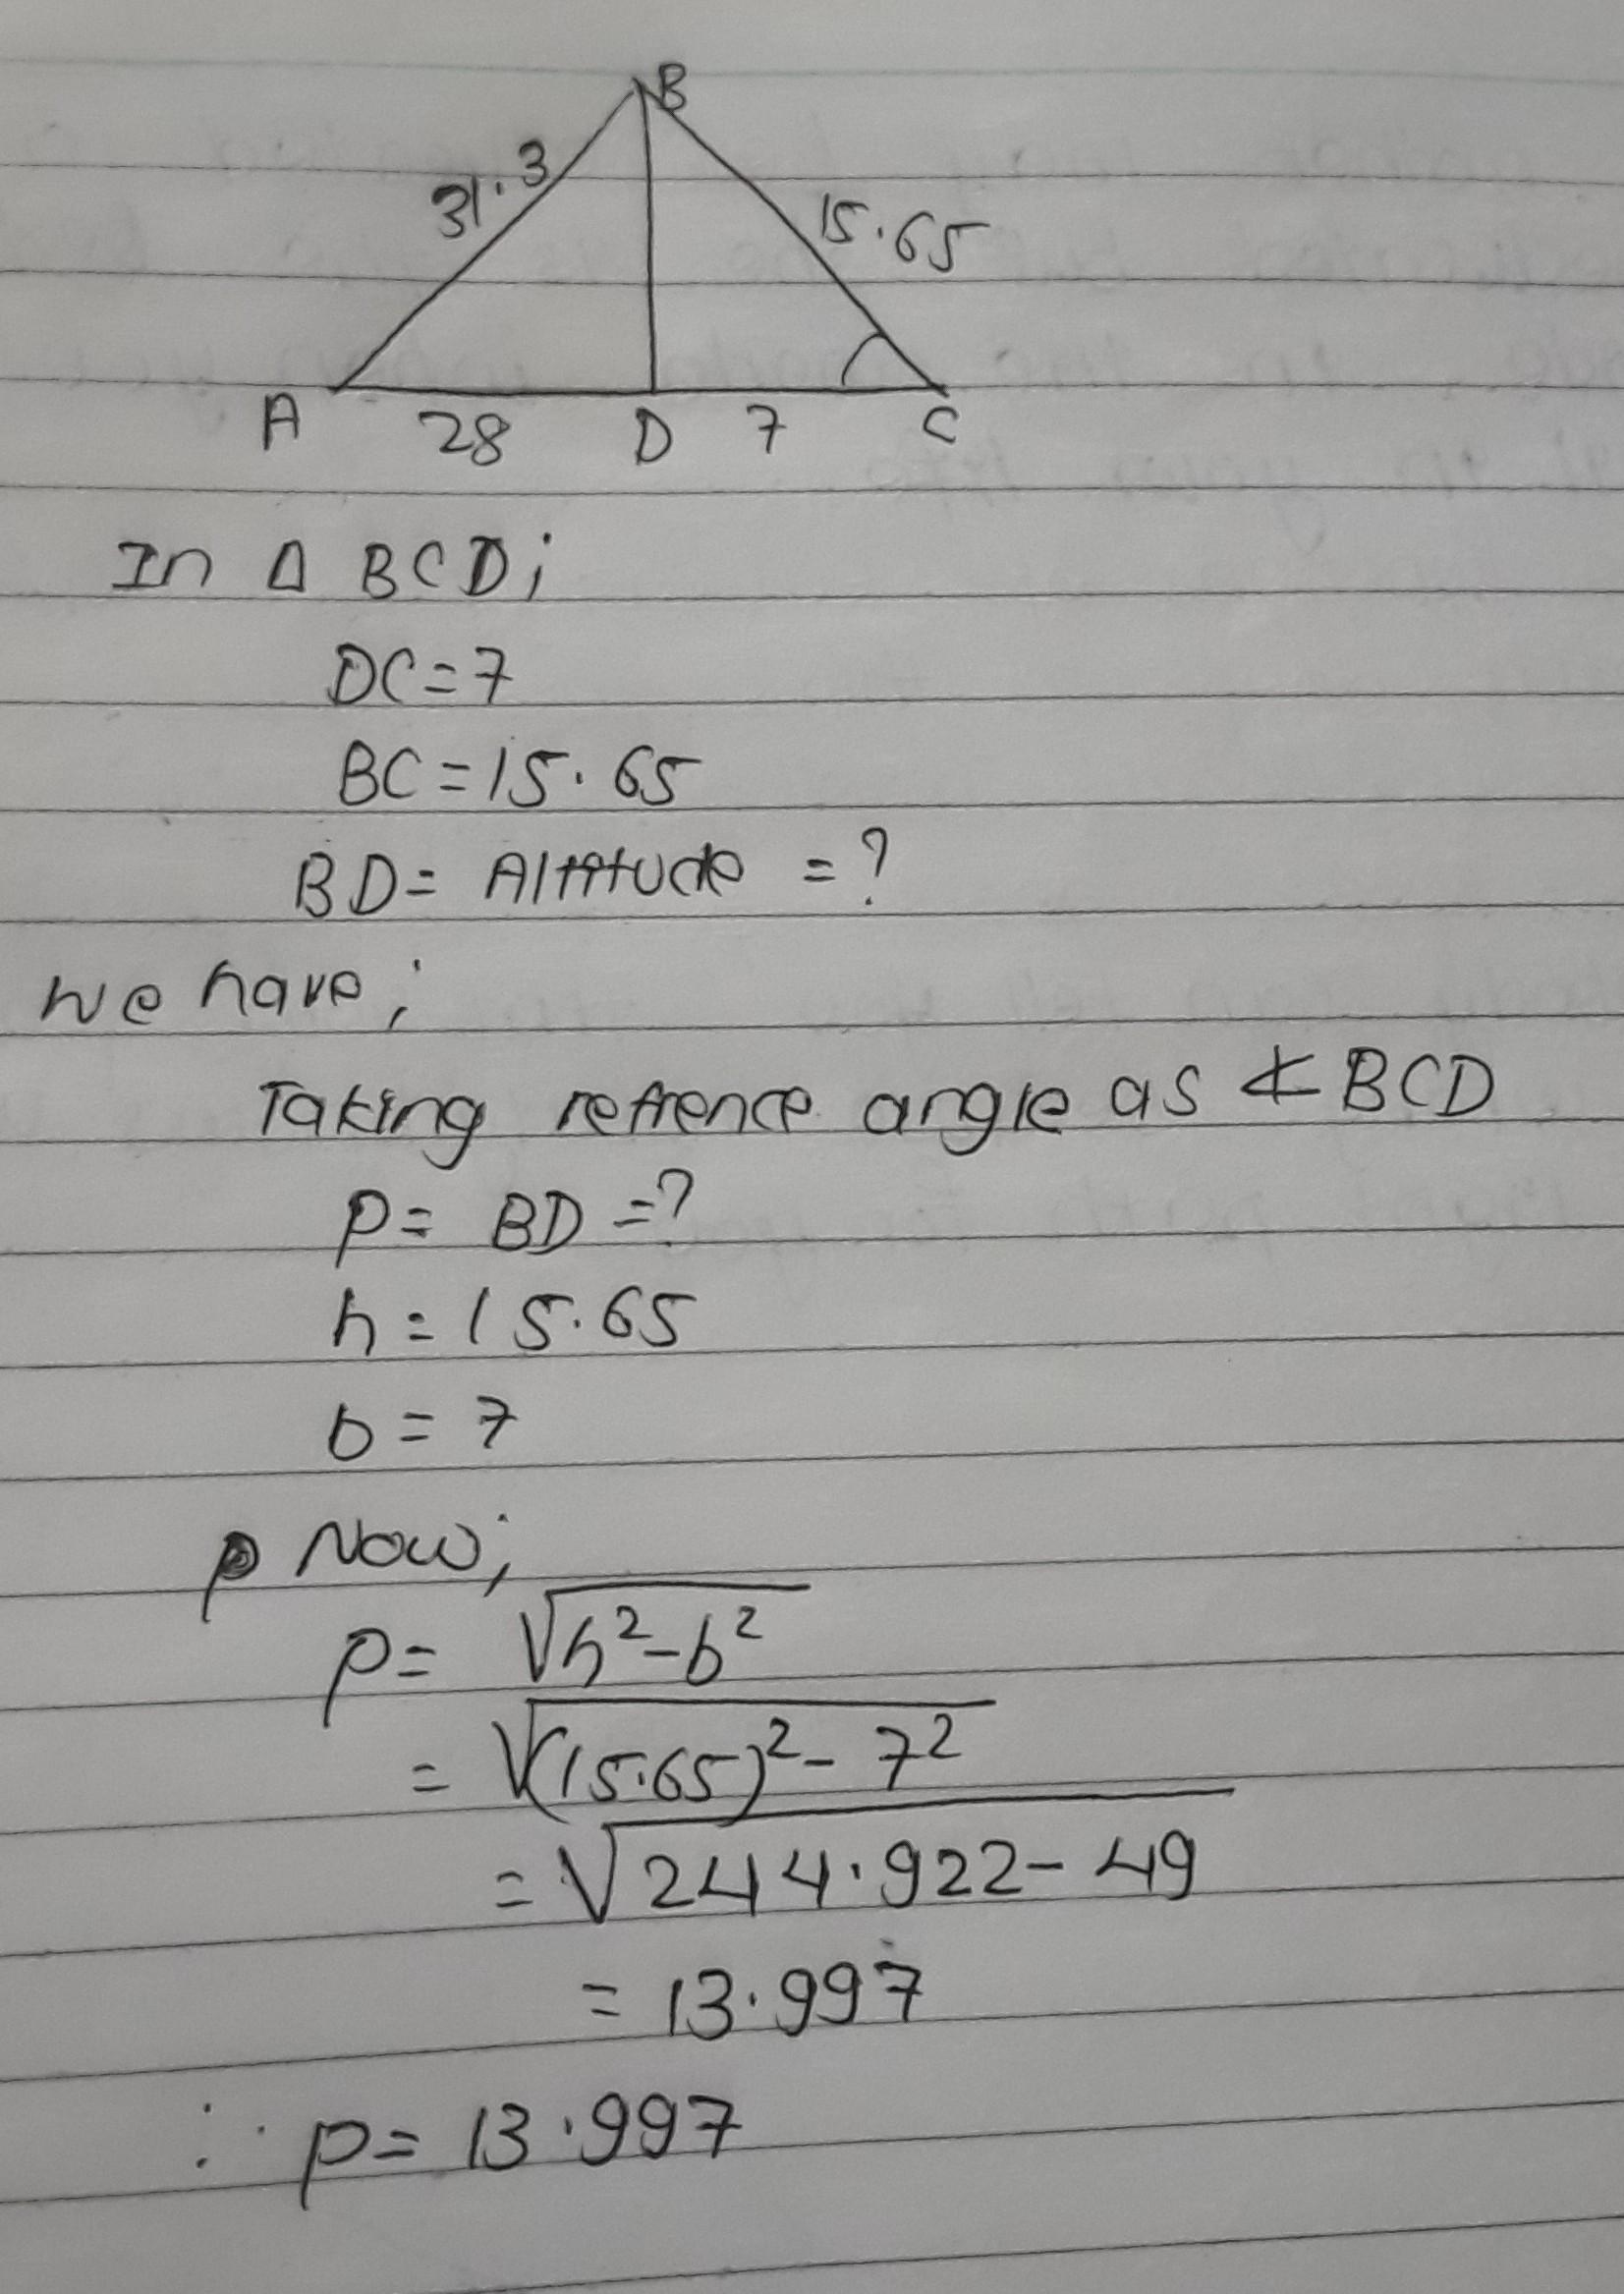 B
31.3
15.65
A 28 D 7 C
In Δ BCD;
DC=7
BC=15.65
BD= Altitude =?
We have;
Taking refrence angle as ∡BCD
p= BD =?
h=15.65
b=7
p Now;
p= √h²-b²
= √(15.65)²- 7²
= √244.922- 49
= 13.997
∴ p= 13.997